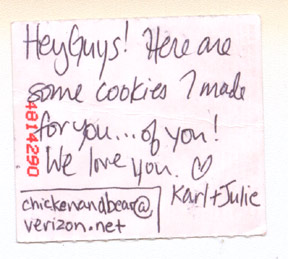 Hey Guys! Here are
some cookies I made
for you...of you!
We love you. ♡
Karl + Julie
chickenandbear@
verizon.net
4814290